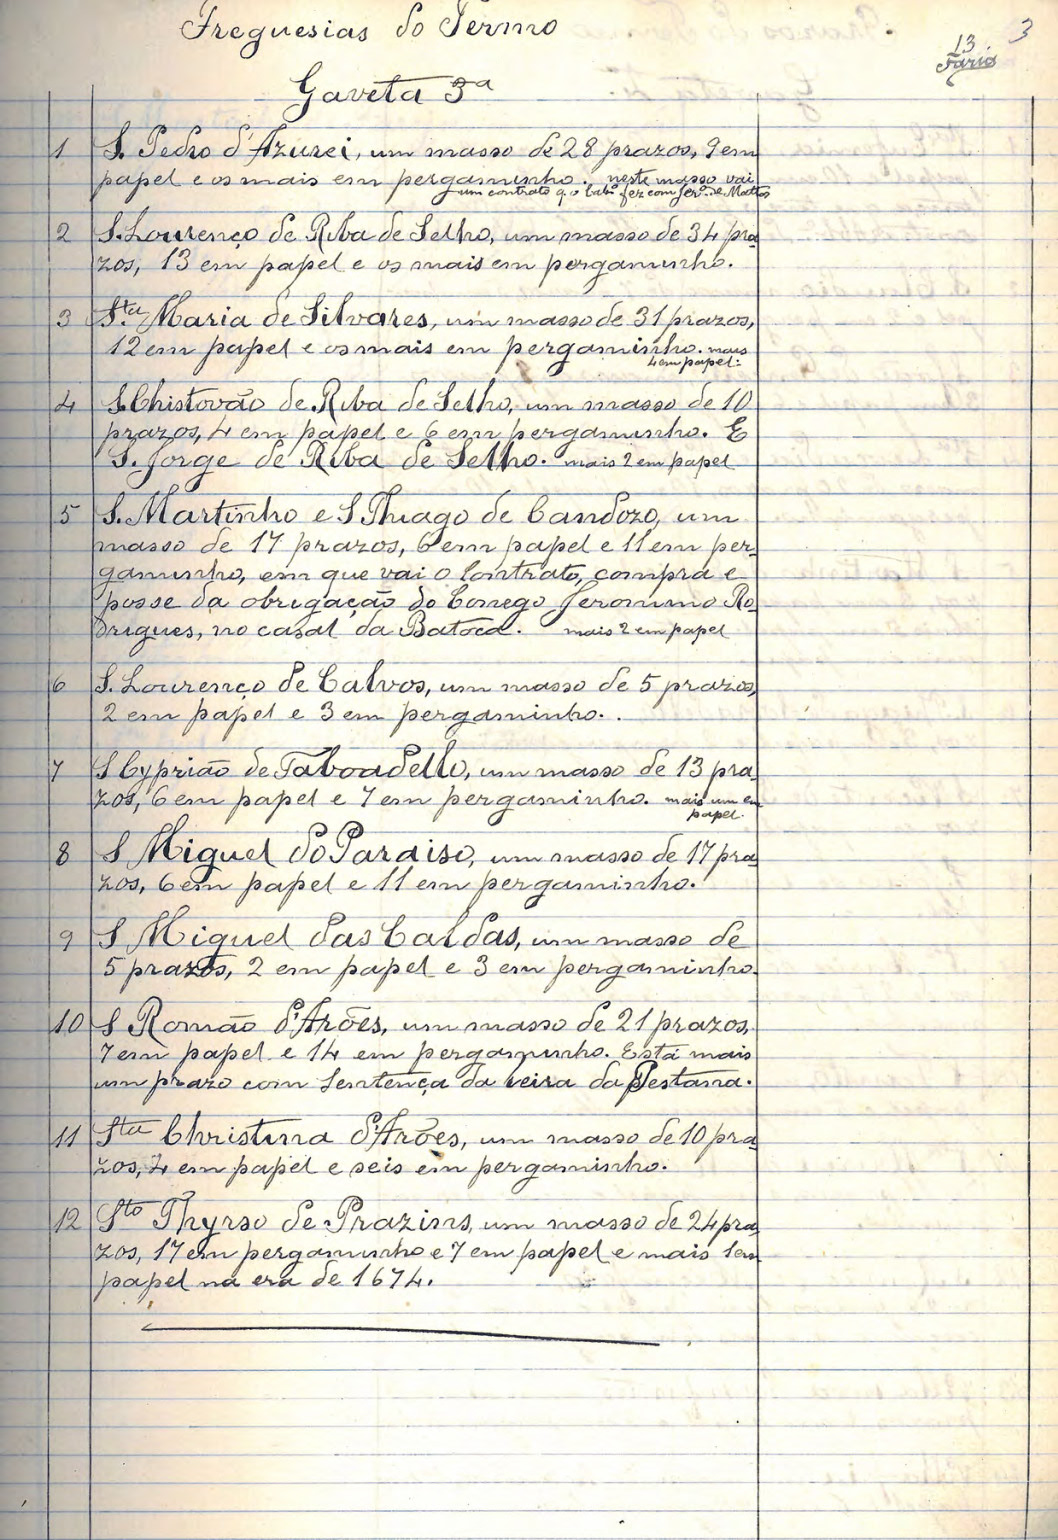 Freguesias do Termo
3
13
Faria
Gaveta 3ª
1 S. Pedro d'Azurei, um masso de 28 prazos, 9 em
papel e os mais em pergaminho. neste masso vai
um contrato q o Cabº fez com Jerº de Mattos
2 S. Lourenço de Riba de Selho, um masso de 34 pra-
zos, 13 em papel e os mais em pergaminho.
3 Sta Maria de Silvares, um masso de 31 prazos,
12 em papel e os mais em pergaminho. mais
4 em papel.
4 S. Christovão de Riba de Selho, um masso de 10
prazos, 4 em papel e 6 em pergaminho. E
S. Jorge de Riba de Selho. mais 2 em papel
5 S. Martinho e S Thiago de Candozo, um
masso de 17 prazos, 6 em papel e 11 em per-
gaminho, em que vai o Contrato, compra e
posse da obrigação do Conego Jeronimo Ro-
drigues, no casal da Batoca. mais 2 em papel
6 S. Lourenço de Calvos, um masso de 5 prazos,
2 em papel e 3 em pergaminho.
7 S Cyprião de Taboadello, um masso de 13 pra-
zos, 6 em papel e 7 em pergaminho. mais um em
papel.
8 S Miguel do Paraiso, um masso de 17 pra-
zos, 6 em papel e 11 em pergaminho.
9 S Miguel das Caldas, um masso de
5 prazos, 2 em papel e 3 em pergaminho.
10 S Romão d'Arões, um masso de 21 prazos,
7 em papel e 14 em pergaminho. Está mais
um prazo com Sentença da leira da Pestana.
11 Sta Christina d'Arões, um masso de 10 pra-
zos, 4 em papel e seis em pergaminho.
12 Sto Thyrso de Prazins, um masso de 24 pra-
zos, 17 em pergaminho e 7 em papel e mais 1 em
papel na era de 1674.